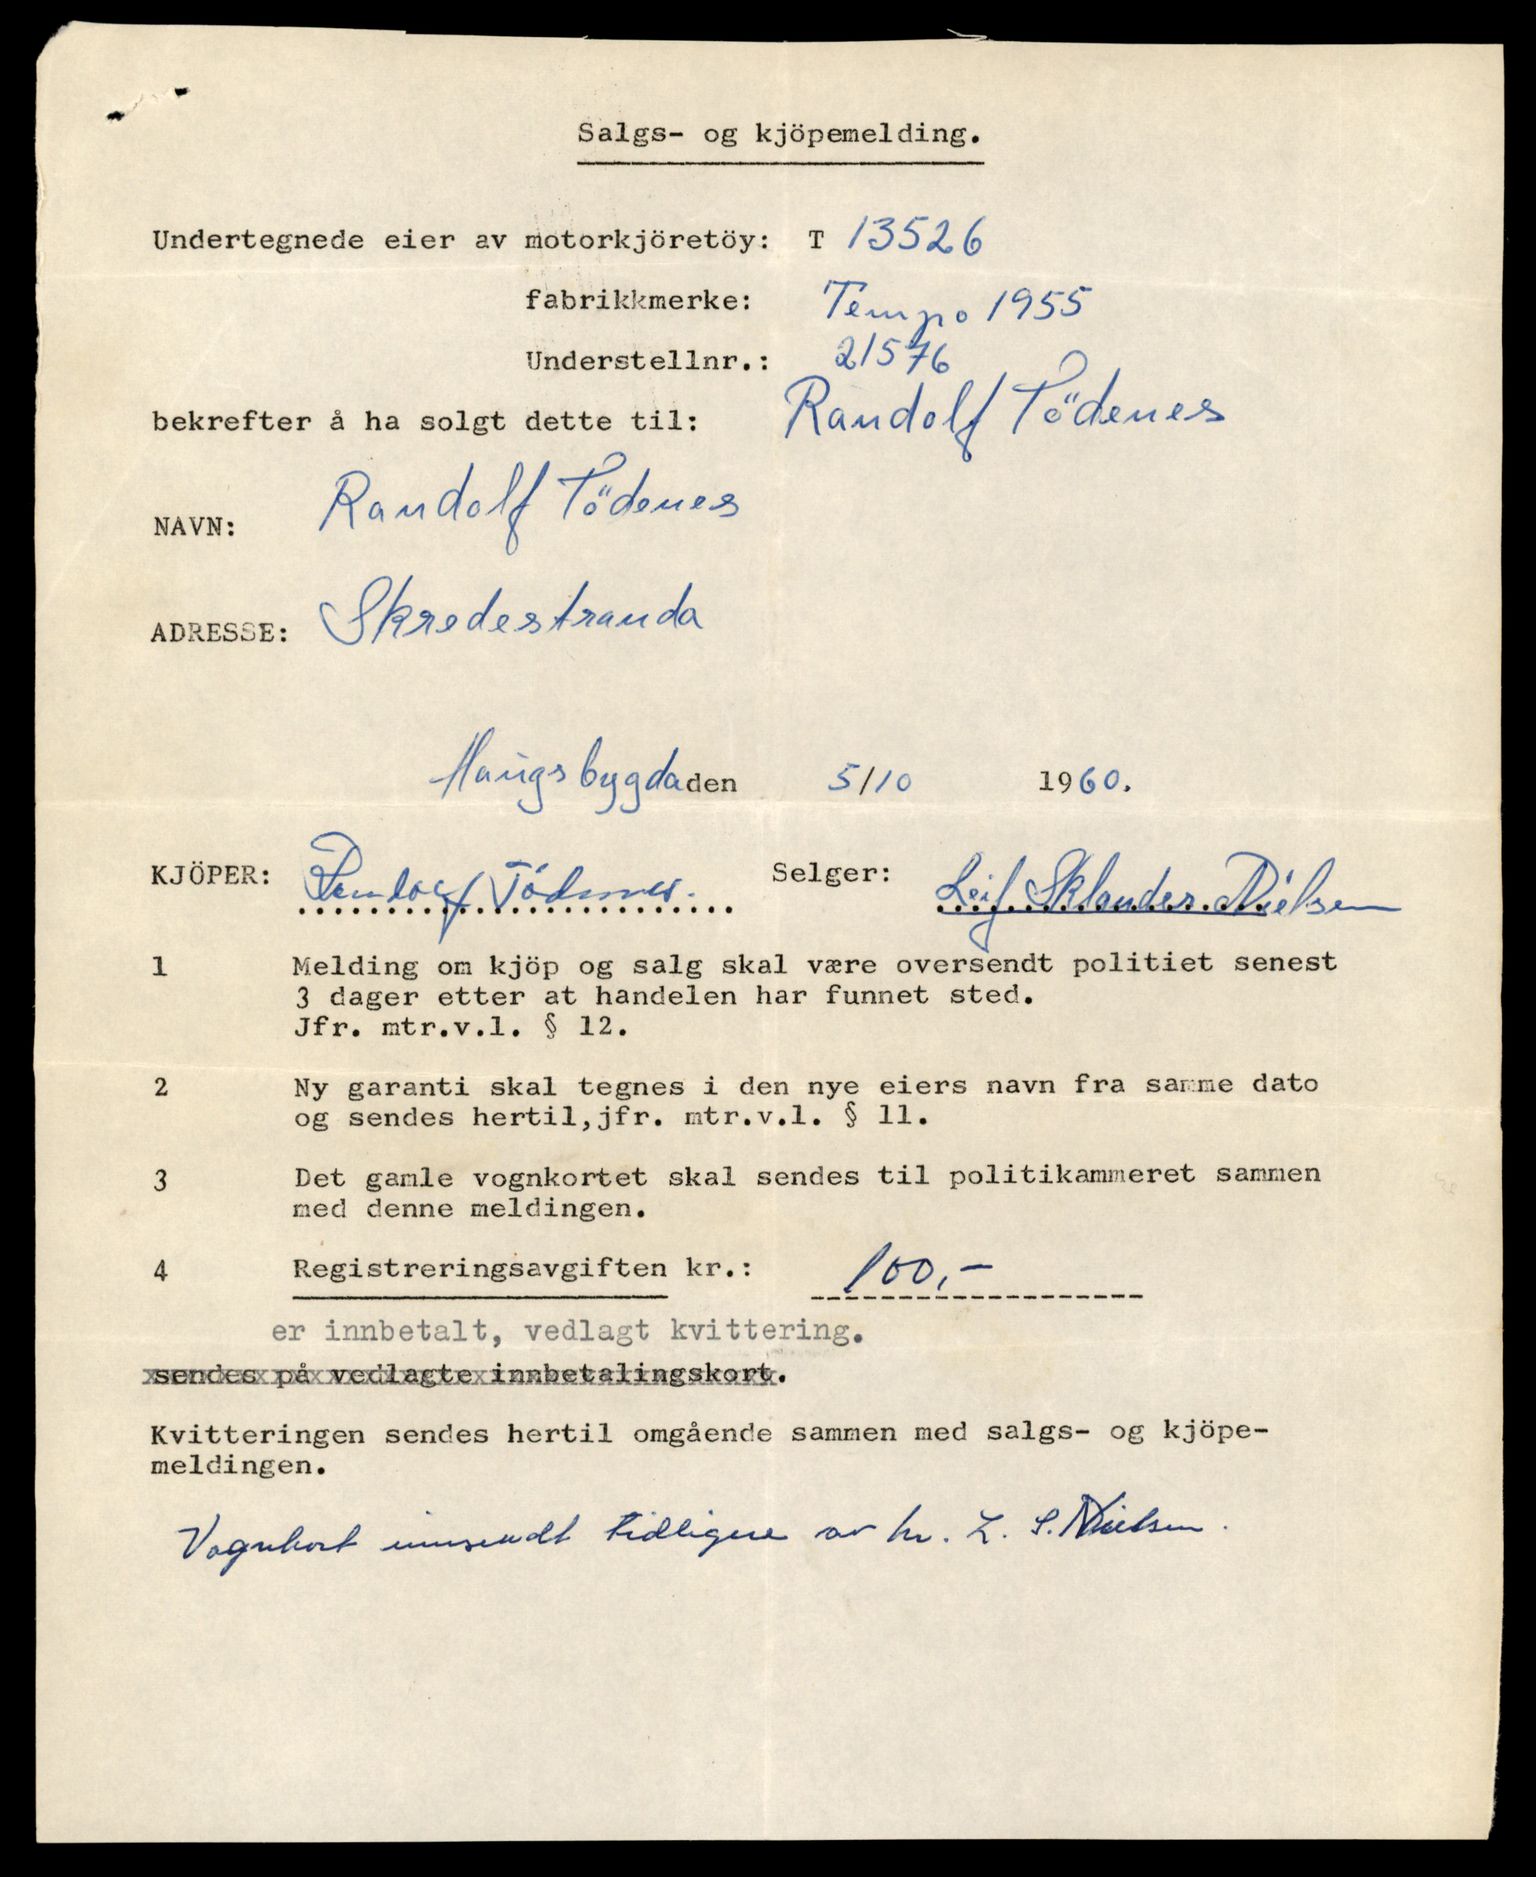 Salgs- og kjöpemelding.
Undertegnede eier av motorkjöretöy: T 13526
fabrikkmerke: Tempo 1955
Understellnr.: 21576
bekrefter å ha solgt dette til: Randolf Tödenes
NAVN: Randolf Tödenes
ADRESSE: Skredestranda
Haugsbygda den 5/10 1960.
KJÖPER: Randolf Tödenes. Selger: Leif Sklander Nielsen
1 Melding om kjöp og salg skal være oversendt politiet senest
3 dager etter at handelen har funnet sted.
Jfr. mtr.v.l. § 12.
2 Ny garanti skal tegnes i den nye eiers navn fra samme dato
og sendes hertil,jfr. mtr.v.l. § 11.
3 Det gamle vognkortet skal sendes til politikammeret sammen
med denne meldingen.
4 Registreringsavgiften kr.: 100,-
er innbetalt, vedlagt kvittering.
sendes på vedlagte innbetalingskort.
Kvitteringen sendes hertil omgående sammen med salgs- og kjöpe-
meldingen.
Vognkort innsendt tidligere av hr. L. S. Nielsen.